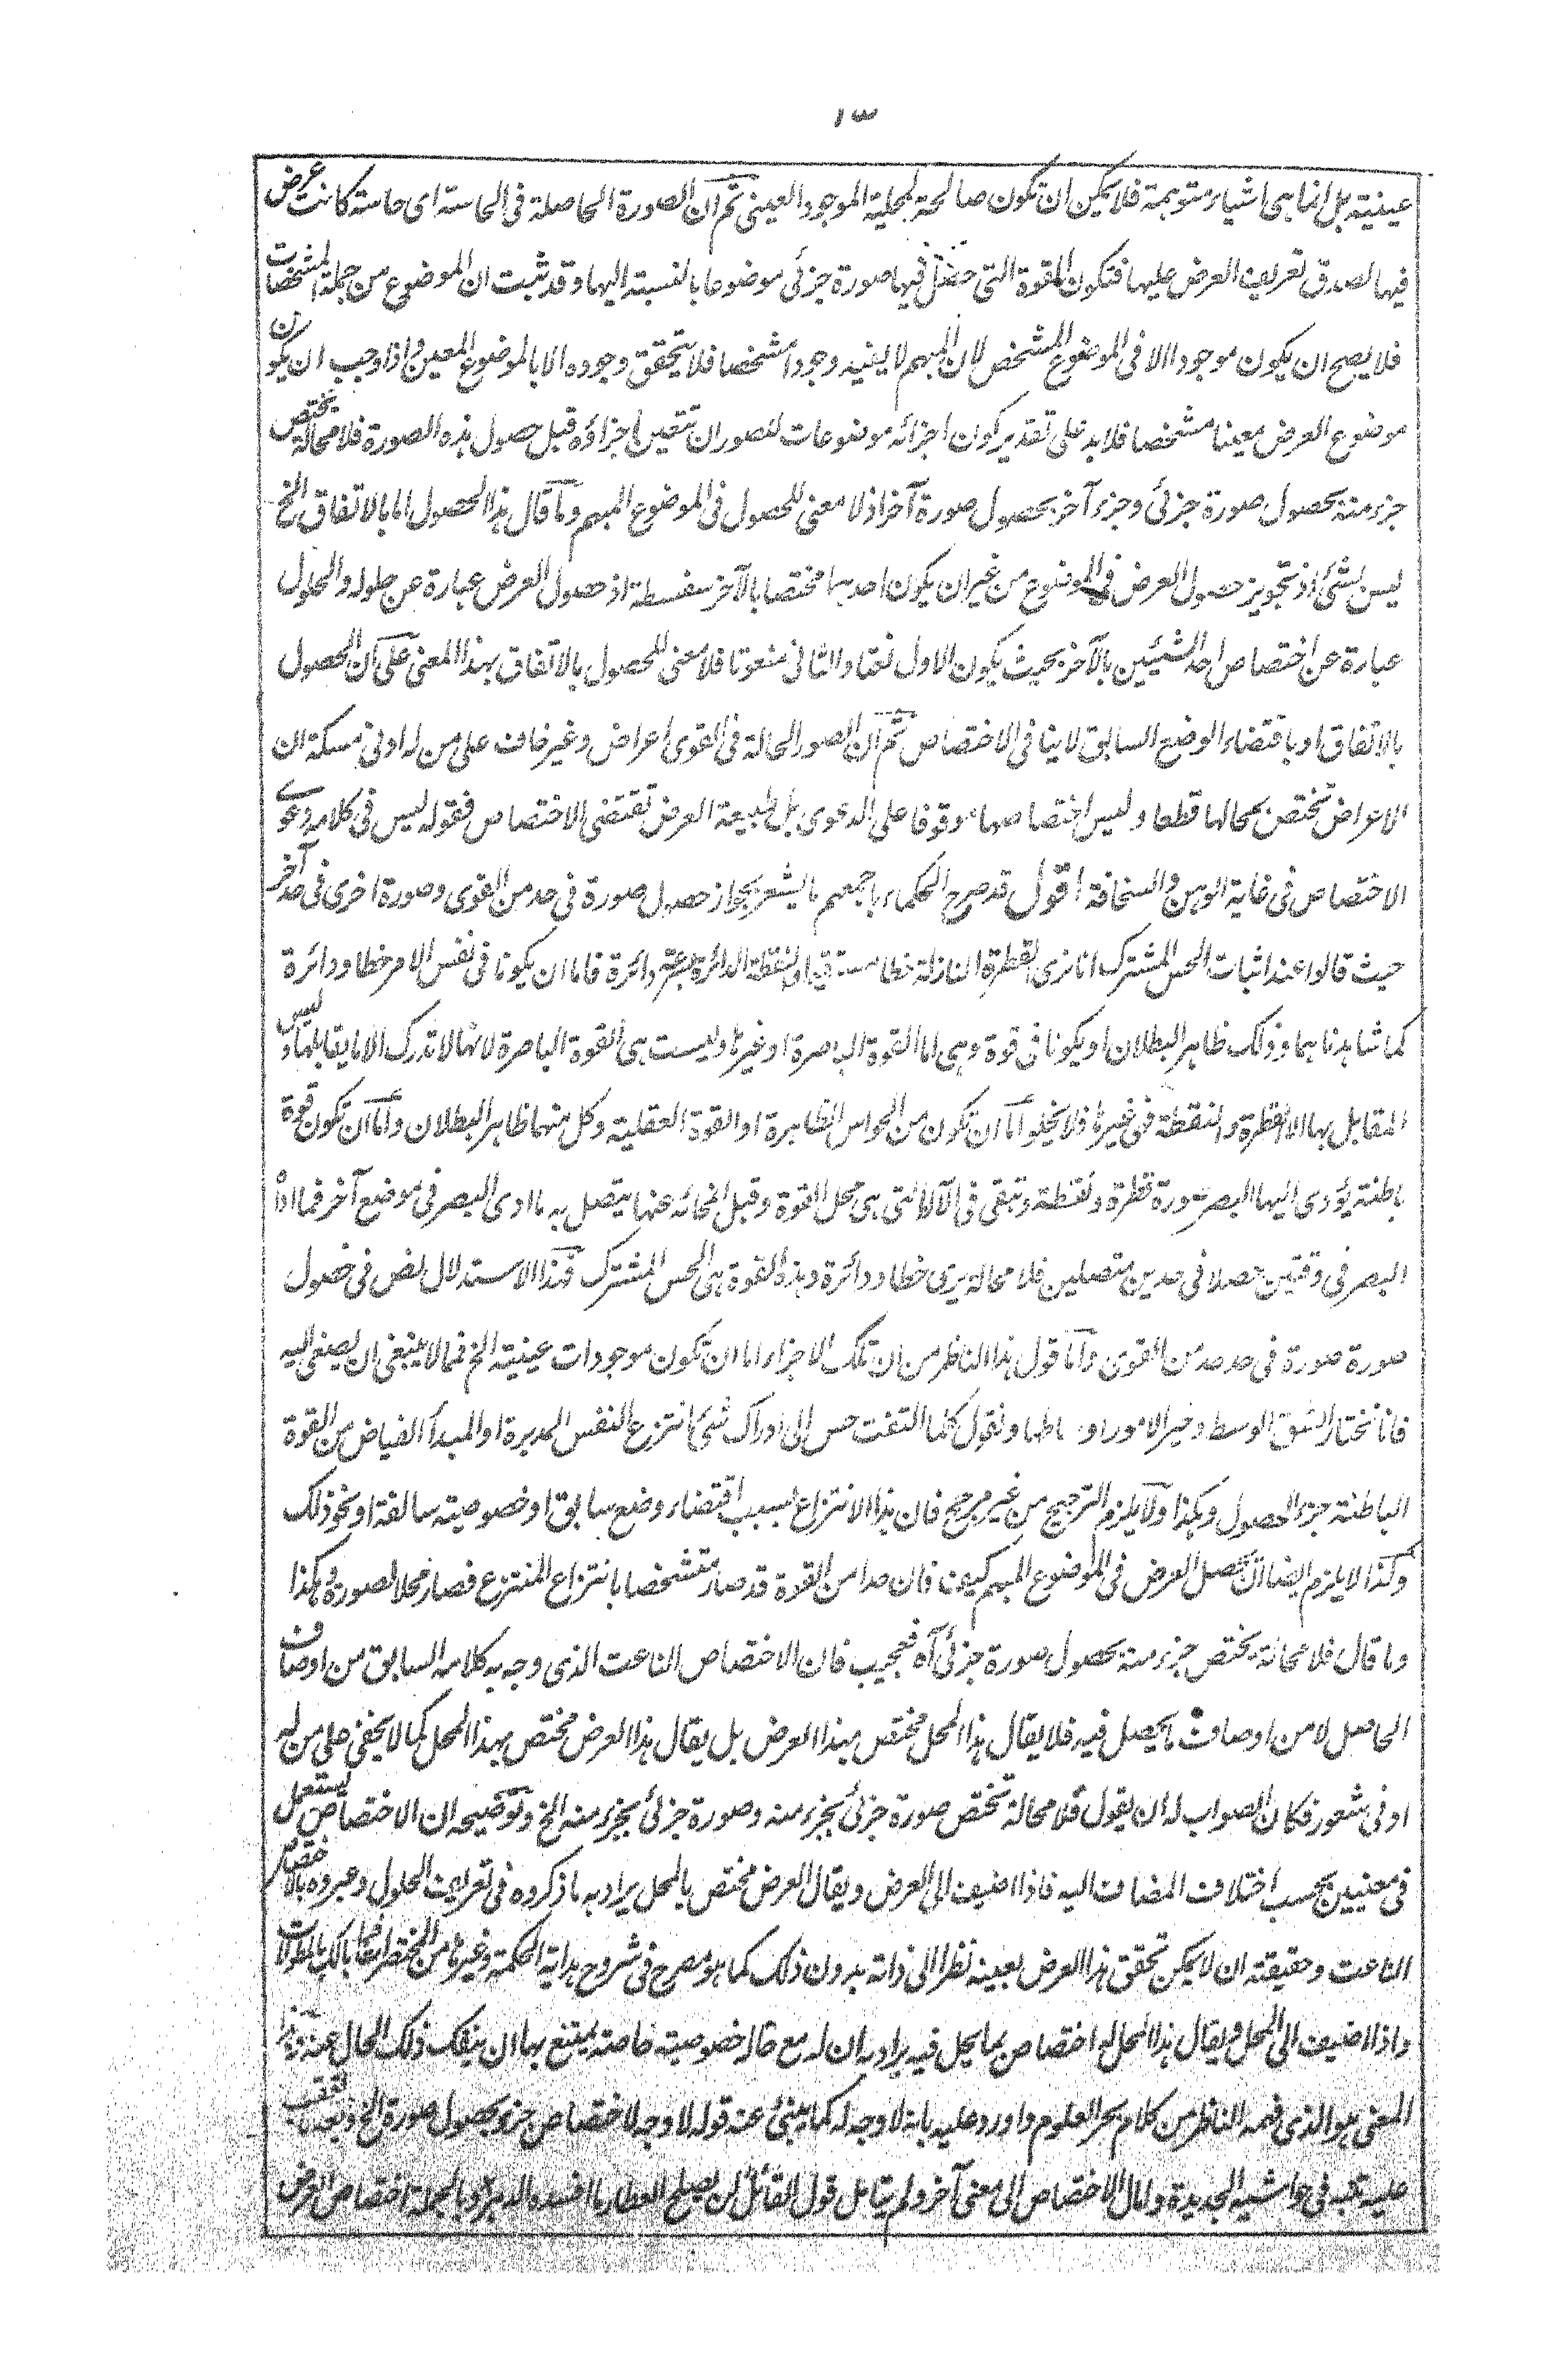 ١٣
عينية بل انما هى اشياء متوهمة فلا يمكن ان تكون صالحة لمحلية الموجود العينى ثم ان الصورة الحاصلة فى الحاسة اى حاسة كانت عرض
فيها لصدق تعريف العرض عليها فتكون القوة التى حصل فيها صورة جزئى موضوعا بالنسبة اليها وقد ثبت ان الموضوع من جملة المشخصات
فلا يصح ان يكون موجودا الا فى الموضوع المشخص لان المبهم لا يفيد وجودا مشخصا فلا يتحقق وجوده الا بالموضوع المعين واذا وجب ان يكون
موضوع العرض معينا مشخصا فلا بد على تقدير كون اجزائه موضوعات للصور ان تتعين اجزاؤه قبل حصول هذه الصورة فلا محالة يختص
جزء منه بحصول صورة جزئى وجزء آخر بحصول صورة آخر اذ لا معنى للحصول فى الموضوع المبهم وما قال هذا الحصول اما بالاتفاق الخ
ليس بشئ اذ تجويز حصول العرض فى الموضوع من غير ان يكون احدهما مختصا بالآخر سفسطة اذ حصول العرض عبارة عن حلوله والحلول
عبارة عن اختصاص احد الشيئين بالآخر بحيث يكون الاول نعتا والثانى منعوتا فلا معنى للحصول بالاتفاق بهذا المعنى على ان الحصول
بالاتفاق او باقتضاء الوضع السابق لا ينافى الاختصاص ثم ان الصور الحالة فى القوى اعراض وغير خاف على من له ادنى مسكة ان
الاعراض تختص بمحالها قطعا وليس اختصاصها موقوفا على الدعوى بل طبيعة العرض تقتضى الاختصاص فقوله ليس فى كلامه دعوى
الاختصاص فى غاية الوهن والسخافة اقول قد صرح الحكماء باجمعهم ما يشعر بجواز حصول صورة فى حد من القوى وصورة اخرى فى حد آخر
حيث قالوا عند اثبات الحس المشترك انا نرى القطرة النازلة خطا مستقيما والنقطة الدائرة بسرعة دائرة فاما ان يكونا فى نفس الامر خطا ودائرة
كما شاهدناهما وذلك ظاهر البطلان او يكونا فى قوة وهى اما القوة الباصرة او غيرها وليست هى القوة الباصرة لانها لا تدرك الا ما يقابلها وليس
المقابل بها الا القطرة والنقطة ففى غيرها فلا يخلو اما ان تكون من الحواس الظاهرة او القوة العقلية وكل منهما ظاهر البطلان واما ان تكون قوة
باطنة يؤدى اليها البصر صورة قطرة ونقطة وتبقى فى الآلة التى هى محل القوة وقبل انمحائه عنها يتصل به ما ادى البصر فى موضع آخر فما اداه
البصر فى وقتين حصلا فى حدين متصلين فلا محالة يرى خطا ودائرة وهذه القوة هى الحس المشترك فهذا الاستدلال نص فى حصول
صورة صورة فى حد حد من القوى واما قول هذا الناظر من ان تلك الاجزاء اما ان تكون موجودات عينية الخ فمما لا ينبغى ان يصغى اليه
فانا نختار الشق الوسط وخير الامور اوساطها ونقول كلما التفت حس الى ادراك شئ انتزع النفس المدبرة او المبدأ الفياض من القوة
الباطنة جزء الحصول وهكذا ولا يلزم الترجيح من غير مرجح فان هذا الانتزاع بسبب اقتضاء وضع سابق او خصوصية سالفة او نحو ذلك
وكذا لا يلزم ايضا ان يحصل العرض فى الموضوع المبهم كيف فان حدا من القوة قد صار متشخصا بانتزاع المنتزع فصار محلا لصورة وهكذا
وما قال فلا محالة يختص جزء منه بحصول صورة جزئى آه فعجيب فان الاختصاص الناعت الذى وجه به كلامه السابق من اوصاف
الحاصل لا من اوصاف ما يحصل فيه فلا يقال هذا المحل مختص بهذا العرض بل يقال هذا العرض مختص بهذا المحل كما لا يخفى على من له
ادنى شعور فكان الصواب له ان يقول فلا محالة تختص صورة جزئى بجزء منه وصورة جزئى بجزء منه الخ وتوضيحه ان الاختصاص يستعمل
فى معنيين بحسب اختلاف المضاف اليه فاذا اضيف الى العرض ويقال العرض مختص بالمحل يراد به ما ذكروه فى تعريف الحلول وعبروه بالاختصاص
الناعت وحقيقته ان لا يمكن تحقق هذا العرض بعينه نظرا الى ذاته بدون ذلك كما هو مصرح فى شروح هداية الحكمة وغيرها من المختصرات فما بالك بالمطولات
واذا اضيف الى المحل ويقال هذا المحل له اختصاص بما يحل فيه يراد به ان له مع حاله خصوصية خاصة يمتنع بها ان ينفك ذلك الحال عنه وهذا
المعنى هو الذى فهمه الناظر من كلام بحر العلوم واورد عليه بانه لا وجه له كما ينبئ عنه قوله لا وجه لاختصاص جزء بحصول صورة الخ وبعد ما تعقب
عليه تنبه فى حواشيه الجديدة وامال الاختصاص الى معنى آخر ولم يتامل قول القائل لن يصلح العطار ما افسده الدهر وبالجملة اختصاص العرض